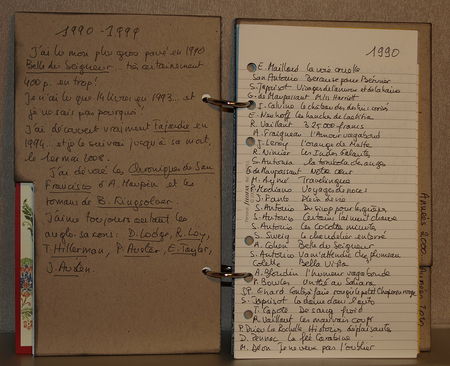 1990 - 1999
J'ai lu mon plus gros pavé en 1990
Belle du Seigneur... très certainement
400 p. en trop!
Je n'ai lu que 14 livres en 1993... et
je ne sais pas pourquoi!
J'ai découvert vraiment Lajardie en
1994... et je le suivrai jusqu'à sa mort,
le 1er mai 2008.
J'ai dévoré les Chroniques de San
Francisco d'A. Maupin et les
romans de B. Kingsolver.
J'aime toujours autant les
anglo-saxons: D. Lodge, R. Loy,
T. Hillerman, P. Auster, E. Taylor,
J. Austen.
1990
E. Maillard la voie cruelle
San Antonio Berceuse pour Bérurier
S. Japrisot Visages de l'amour et de la haine
G. de Maupassant Miss Harriet
I. Calvino le château des destins croisés
E. les hanches de Laetitia
R. Vaillant 325 000 francs
A. Fraigneau l'Amour vagabond
J. Leroy l'orange de Malte
R. Nimier les Indes Galantes
S. Antonio
G. de Maupassant Notre cœur
M. Aymé Travelingue
P. Modiano Voyage de noces
J. Fante Plein de vie
S. Antonio Du sirop pour les guêpes
S. Antonio Certains l'aiment chauve
S. Antonio les cocottes minute
S. Zweig le chandelier enterré
A. Cohen Belle du Seigneur
S. Antonio Va m'attendre chez Plumeau
Colette Bella Vista
A. Blondin l'humeur vagabonde
P. Bowles Un thé au Sahara
P. Enard Contes à faire rougir le petit Chaperon rouge
S. Japrisot la dame dans l'auto
T. Capote De sang froid
R. Vaillant les mauvais coups
P. Drieu la Rochelle, Histoires déplaisantes
D. Pennac la fée Carabine
M. Déon Je ne veux pas l'oublier
Années 2000